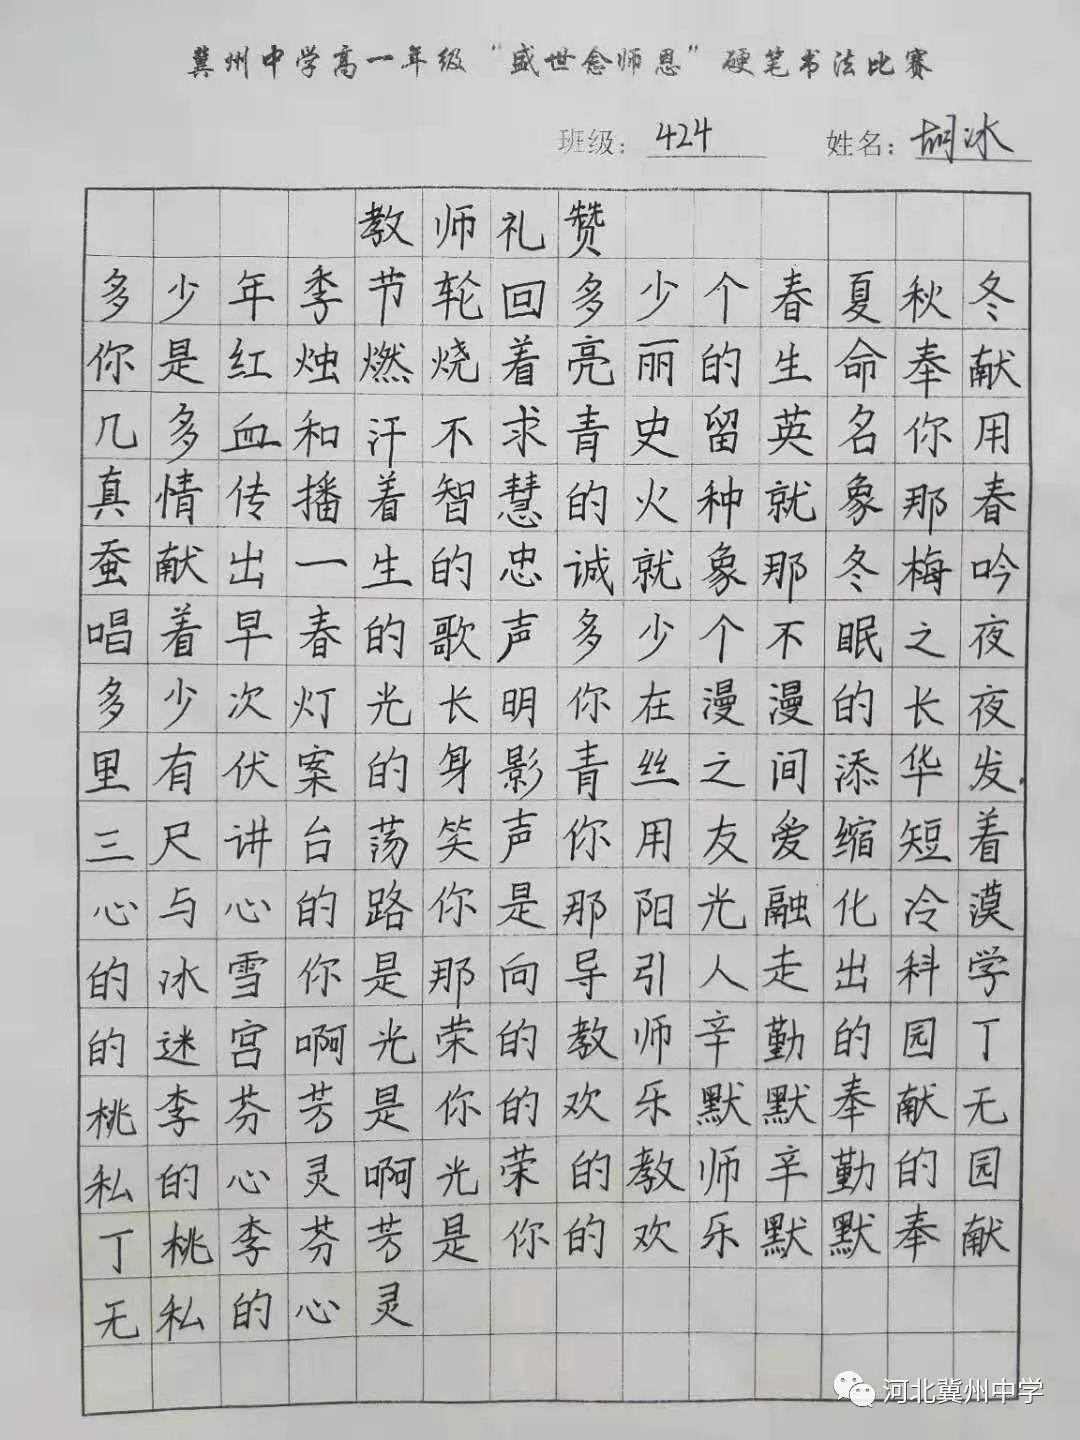 冀州中学高一年级“盛世念师恩”硬笔书法比赛
班级：424 姓名：胡冰
教师礼赞
多少年季节轮回多少个春夏秋冬
你是红烛燃烧着亮丽的生命奉献
几多血和汗不求青史留英名你用
真情传播着智慧的火种就象那春
蚕献出一生的忠诚就象那冬梅吟
唱着早春的歌声多少个不眠之夜
多少次灯光长明你在漫漫的长夜
里有伏案的身影青丝之间添华发.
三尺讲台荡笑声你用友爱缩短着
心与心的路你是那阳光融化冷漠
的冰雪你是那向导引人走出科学
的迷宫啊光荣的教师辛勤的园丁
桃李芬芳是你的欢乐默默奉献无
私的心灵啊光荣的教师辛勤的园
丁桃李芬芳是你的欢乐默默奉献
无私的心灵
河北冀州中学